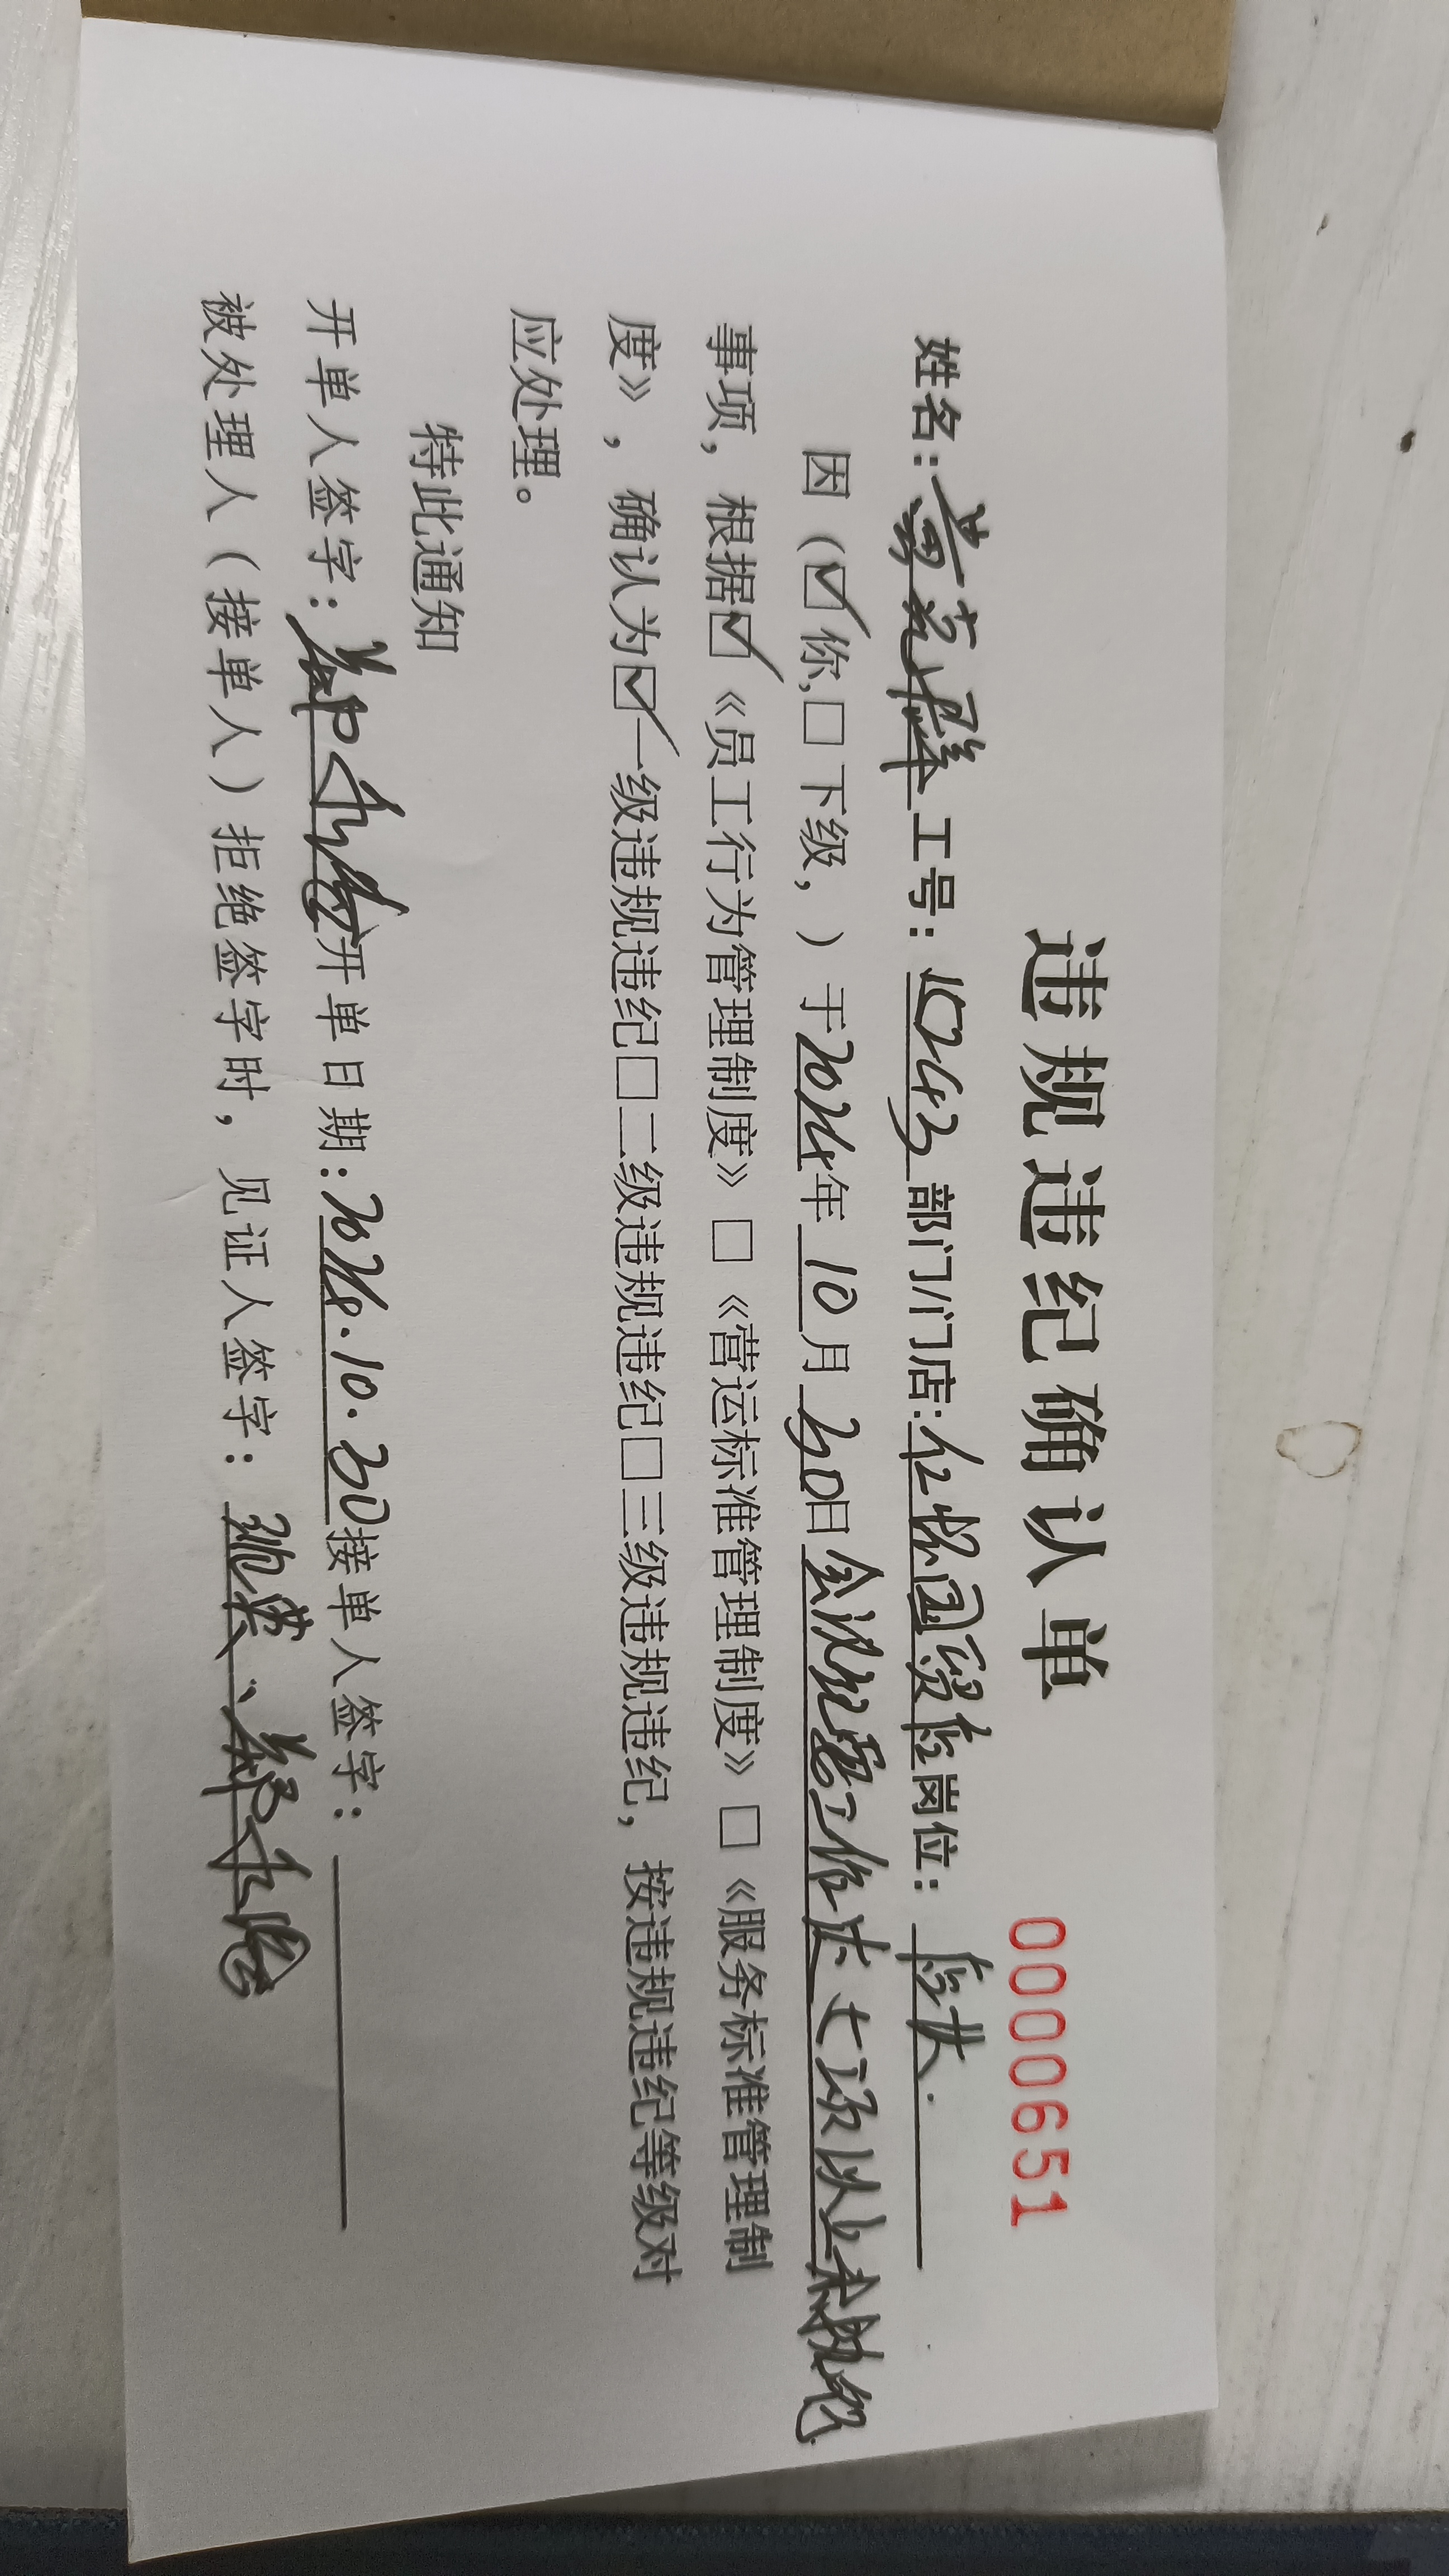 违规违纪确认单 0000651
姓名： 工号：10243 部门/门店：仁怀国贸店 岗位：店长
因（☑你,□下级，）于2024年10月30日会议纪要工作达七项以上未执行
事项，根据☑《员工行为管理制度》□《营运标准管理制度》□《服务标准管理制
度》，确认为☑一级违规违纪□二级违规违纪□三级违规违纪，按违规违纪等级对
应处理。
特此通知
开单人签字： 开单日期：2024.10.30 接单人签字：
被处理人（接单人）拒绝签字时，见证人签字：